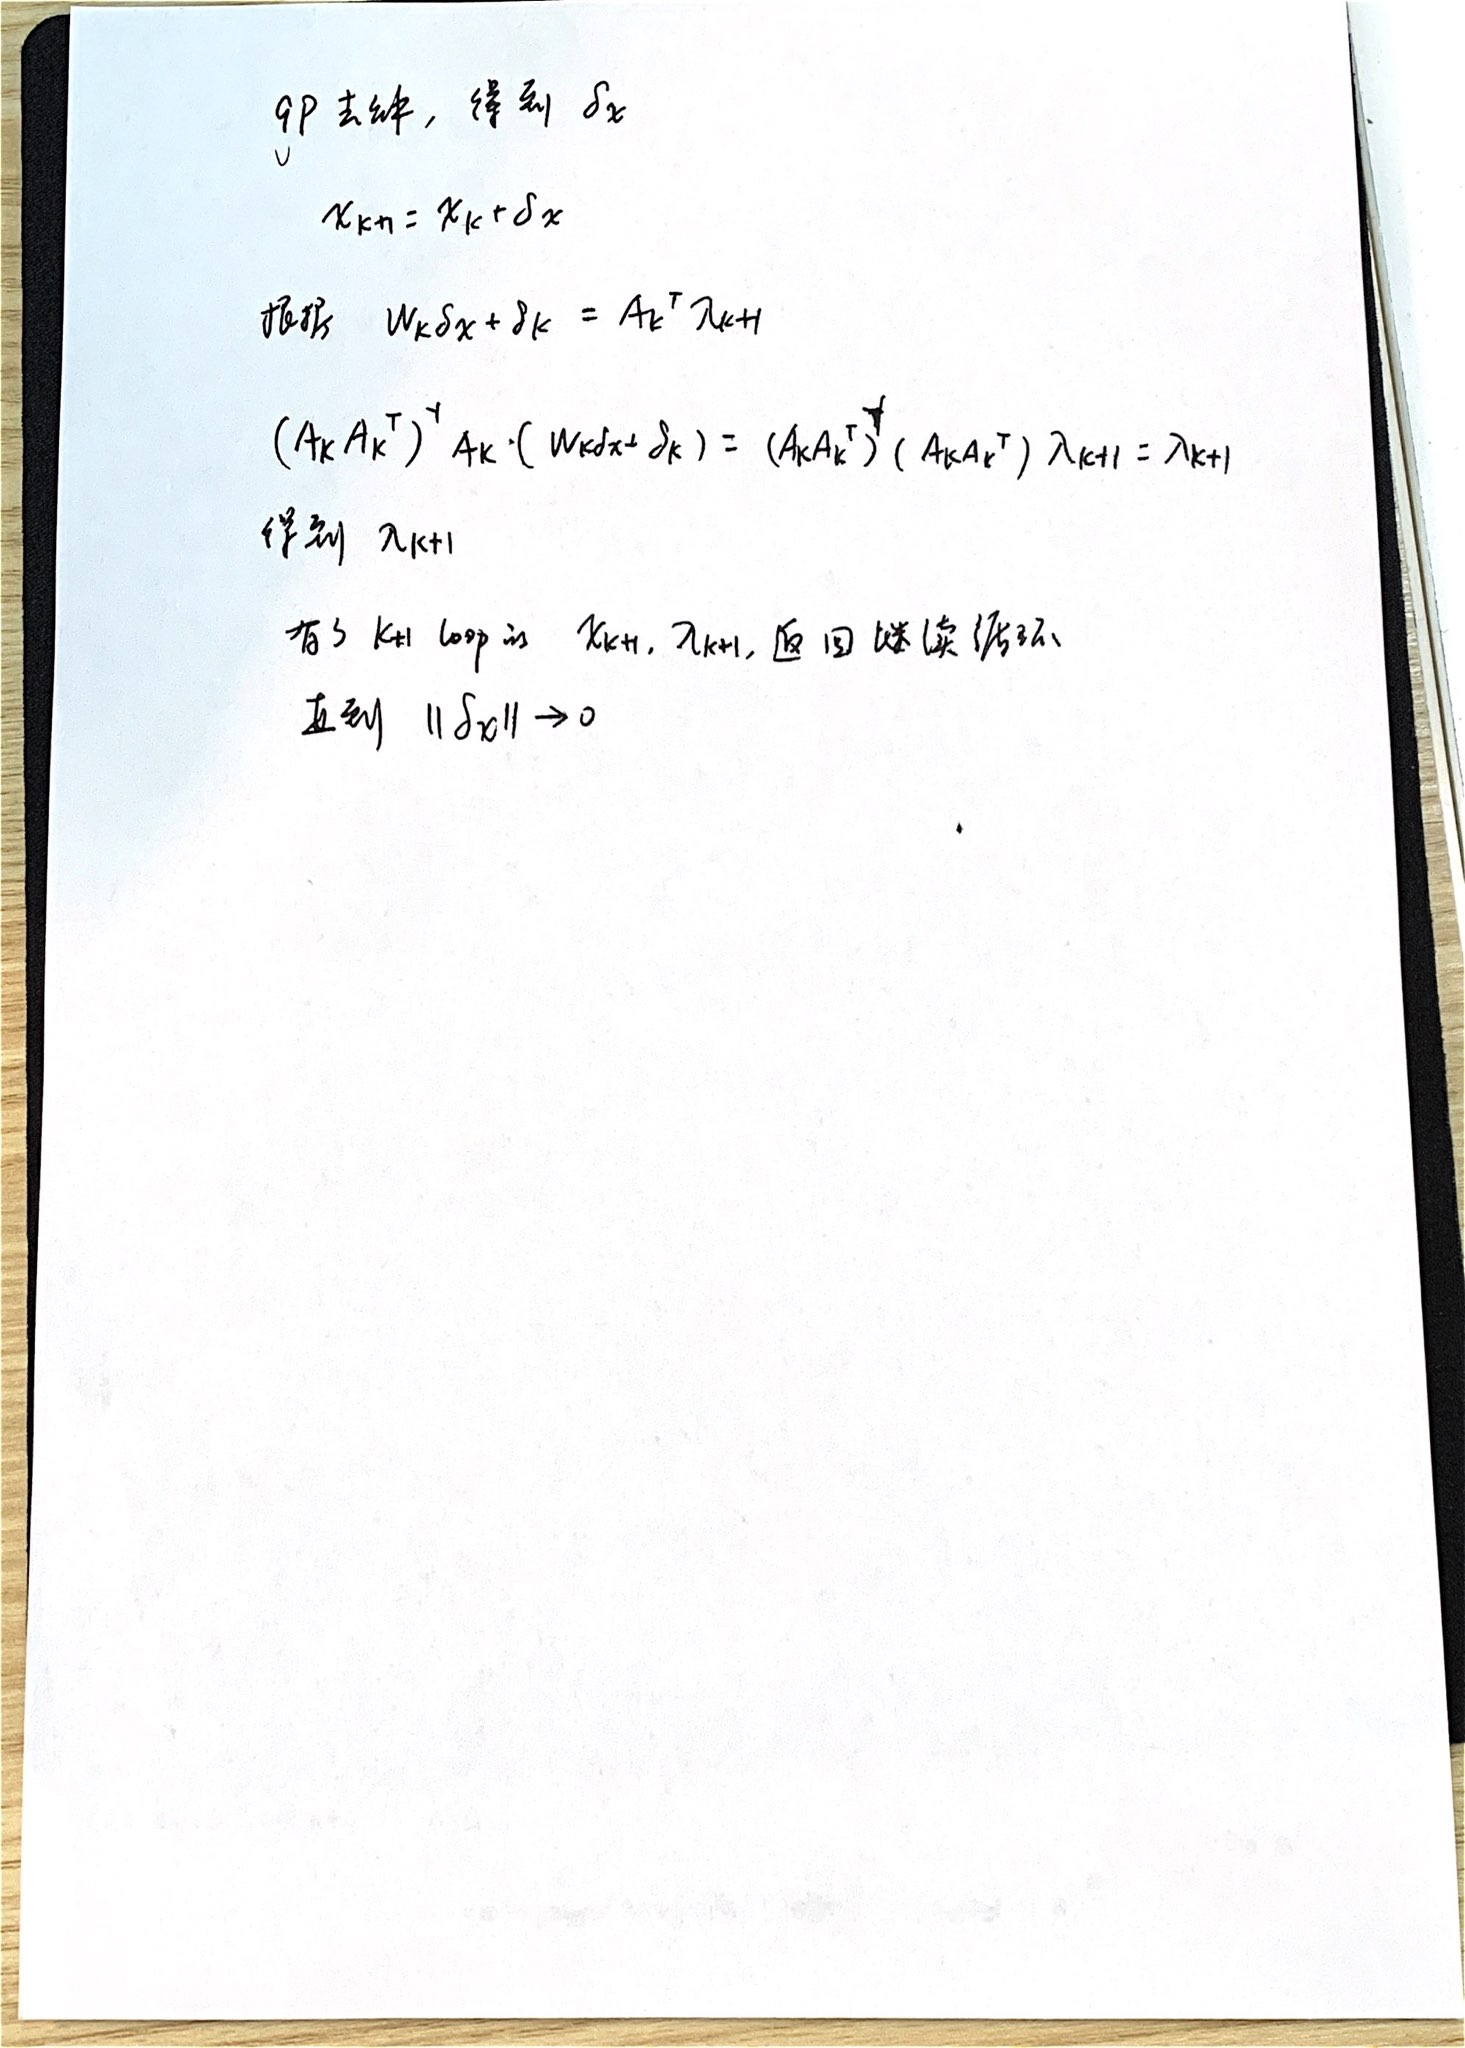 QP去解, 得到 δx
x_{k+1} = x_k + δx
根据 W_k δx + g_k = A_k^T λ_{k+1}
(A_k A_k^T)^{-1} A_k · (W_k δx + g_k) = (A_k A_k^T)^{-1} (A_k A_k^T) λ_{k+1} = λ_{k+1}
得到 λ_{k+1}
有了 k+1 loop的 x_{k+1}, λ_{k+1}, 返回继续循环
直到 ||δx|| → 0